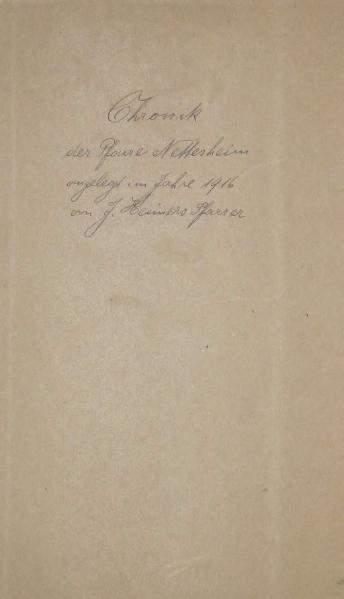 Chronik
der Pfarre Nettesheim
angelegt im Jahre 1916
von J. Heimers Pfarrer